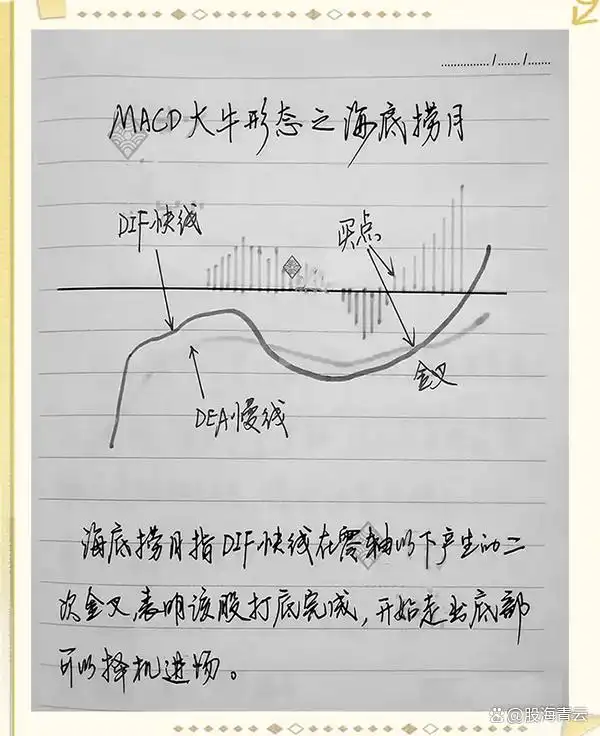 ............../......./.......
MACD大牛形态之海底捞月
DIF快线
买点
金叉
DEA慢线
海底捞月指DIF快线在零轴以下产生的二
次金叉,表明该股打底完成,开始走出底部
可以择机进场。
@股海青云